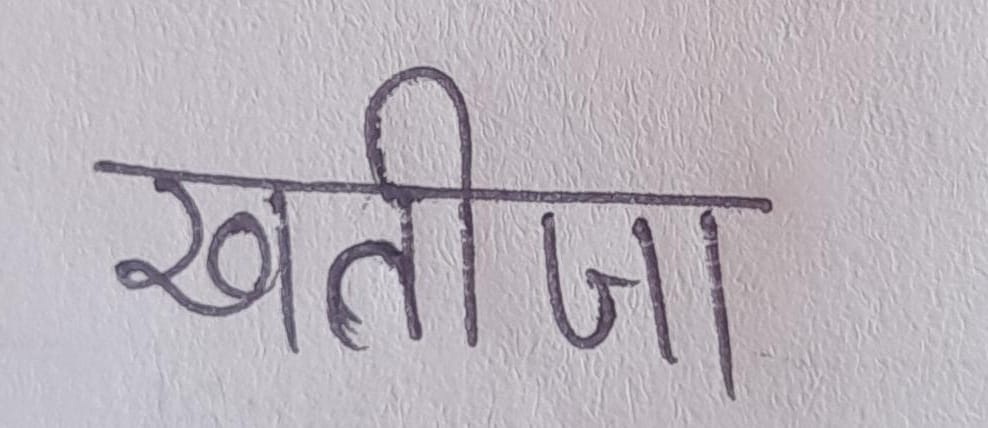 खतीजा